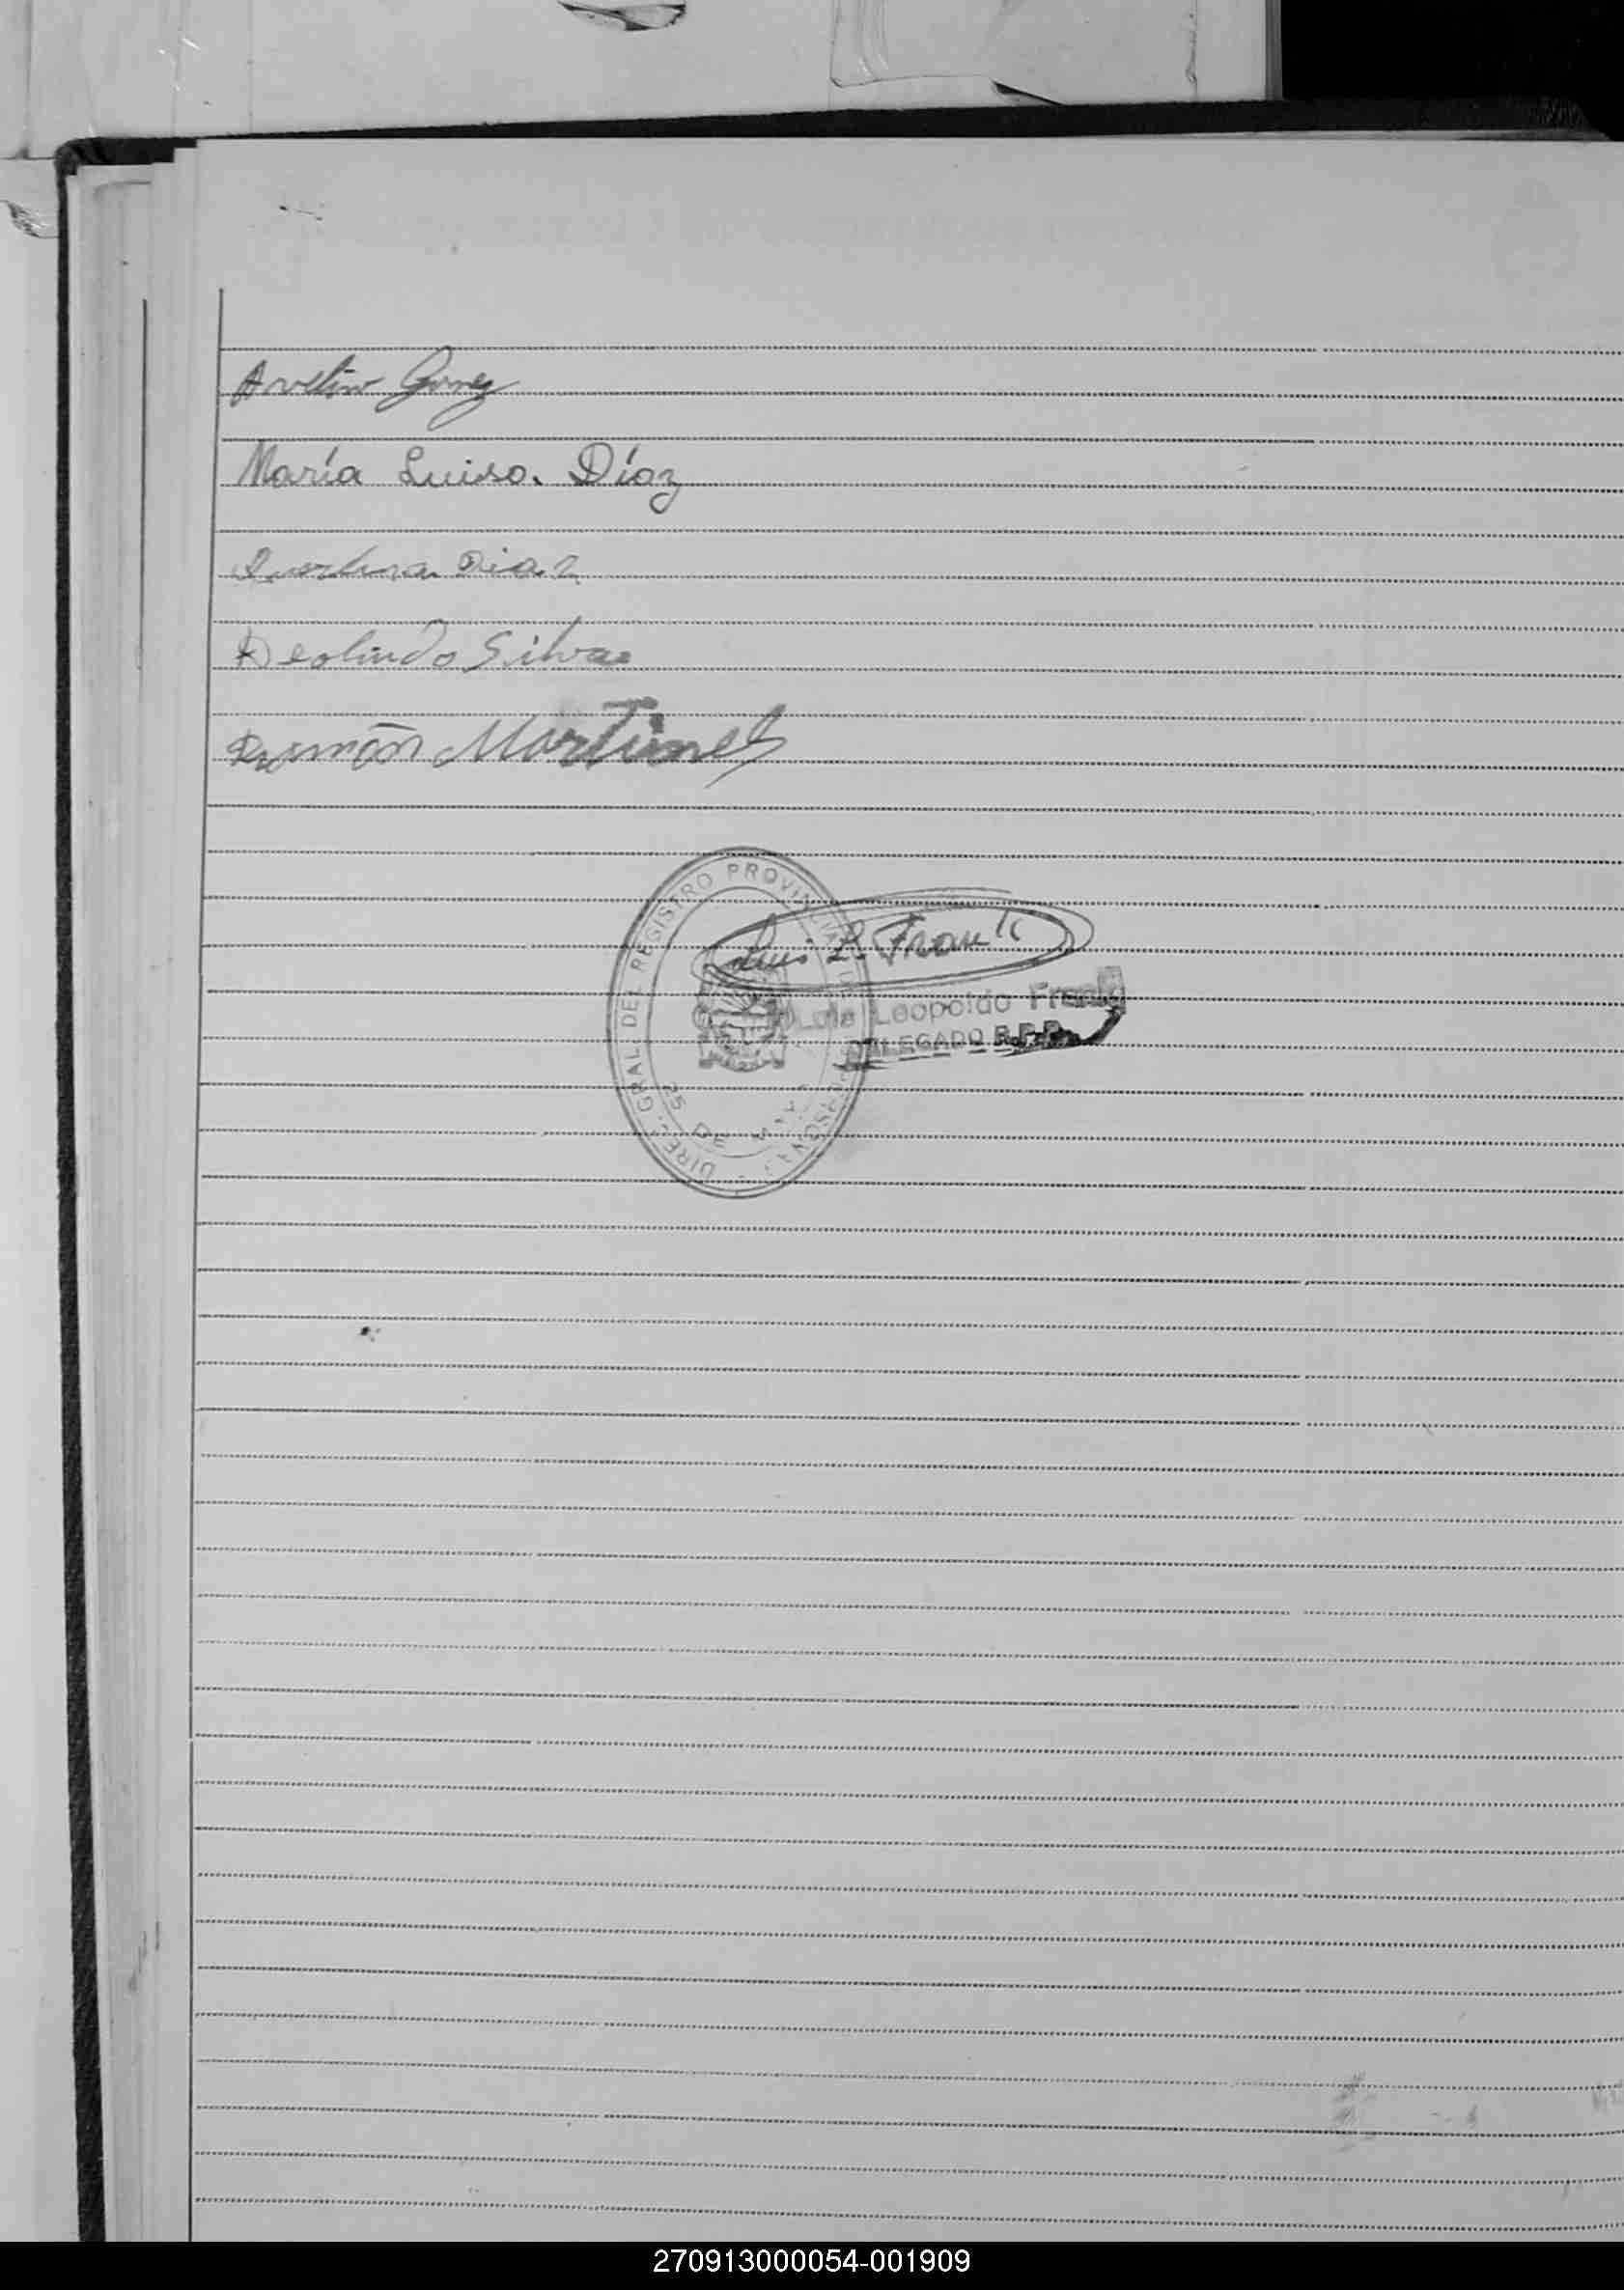 Avelino Gomez
María Luisa Díaz
Diaz
Deolindo Silva
Ramón Martinez
DIREC. GRAL. DEL REGISTRO PROVINCIAL DE LAS PERSONAS
25 DE MAYO
Luis L. Frank
Luis Leopoldo Frank
DELEGADO R.P.P.
270913000054-001909